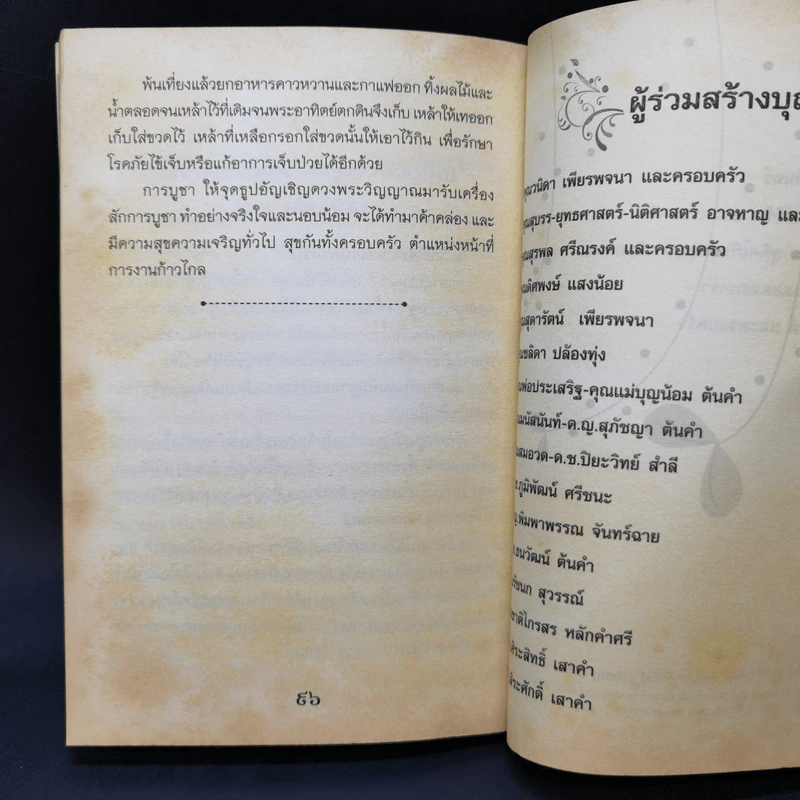 พ้นเที่ยงแล้วยกอาหารคาวหวานและกาแฟออก ทิ้งผลไม้และ
น้ำตลอดจนเหล้าไว้ที่เดิมจนพระอาทิตย์ตกดินจึงเก็บ เหล้าให้เทออก
เก็บใส่ขวดไว้ เหล้าที่เหลือกรอกใส่ขวดนั้นให้เอาไว้กิน เพื่อรักษา
โรคภัยไข้เจ็บหรือแก้อาการเจ็บป่วยได้อีกด้วย
การบูชา ให้จุดธูปอัญเชิญดวงพระวิญญาณมารับเครื่อง
สักการบูชา ทำอย่างจริงใจและนอบน้อม จะได้ทำมาค้าคล่อง และ
มีความสุขความเจริญทั่วไป สุขกันทั้งครอบครัว ตำแหน่งหน้าที่
การงานก้าวไกล
๙๖
ผู้ร่วมสร้างบุญ
คุณวนิดา เพียรพจนา และครอบครัว
คุณสุบรร-ยุทธศาสตร์-นิติศาสตร์ อาจหาญ และ
คุณสุรพล ศรีณรงค์ และครอบครัว
คุณดิศพงษ์ แสงน้อย
คุณสุดารัตน์ เพียรพจนา
ชลิดา ปล้องทุ่ง
พ่อประเสริฐ-คุณแม่บุญน้อม ต้นคำ
มนัสนันท์-ด.ญ.สุภัชญา ต้นคำ
สมอวด-ด.ช.ปิยะวิทย์ สำลี
ภูมิพัฒน์ ศรีชนะ
พิมพาพรรณ จันทร์ฉาย
ธนวัฒน์ ต้นคำ
สุวรรณ์
ชาติไกรสร หลักคำศรี
เสาคำ
เสาคำ